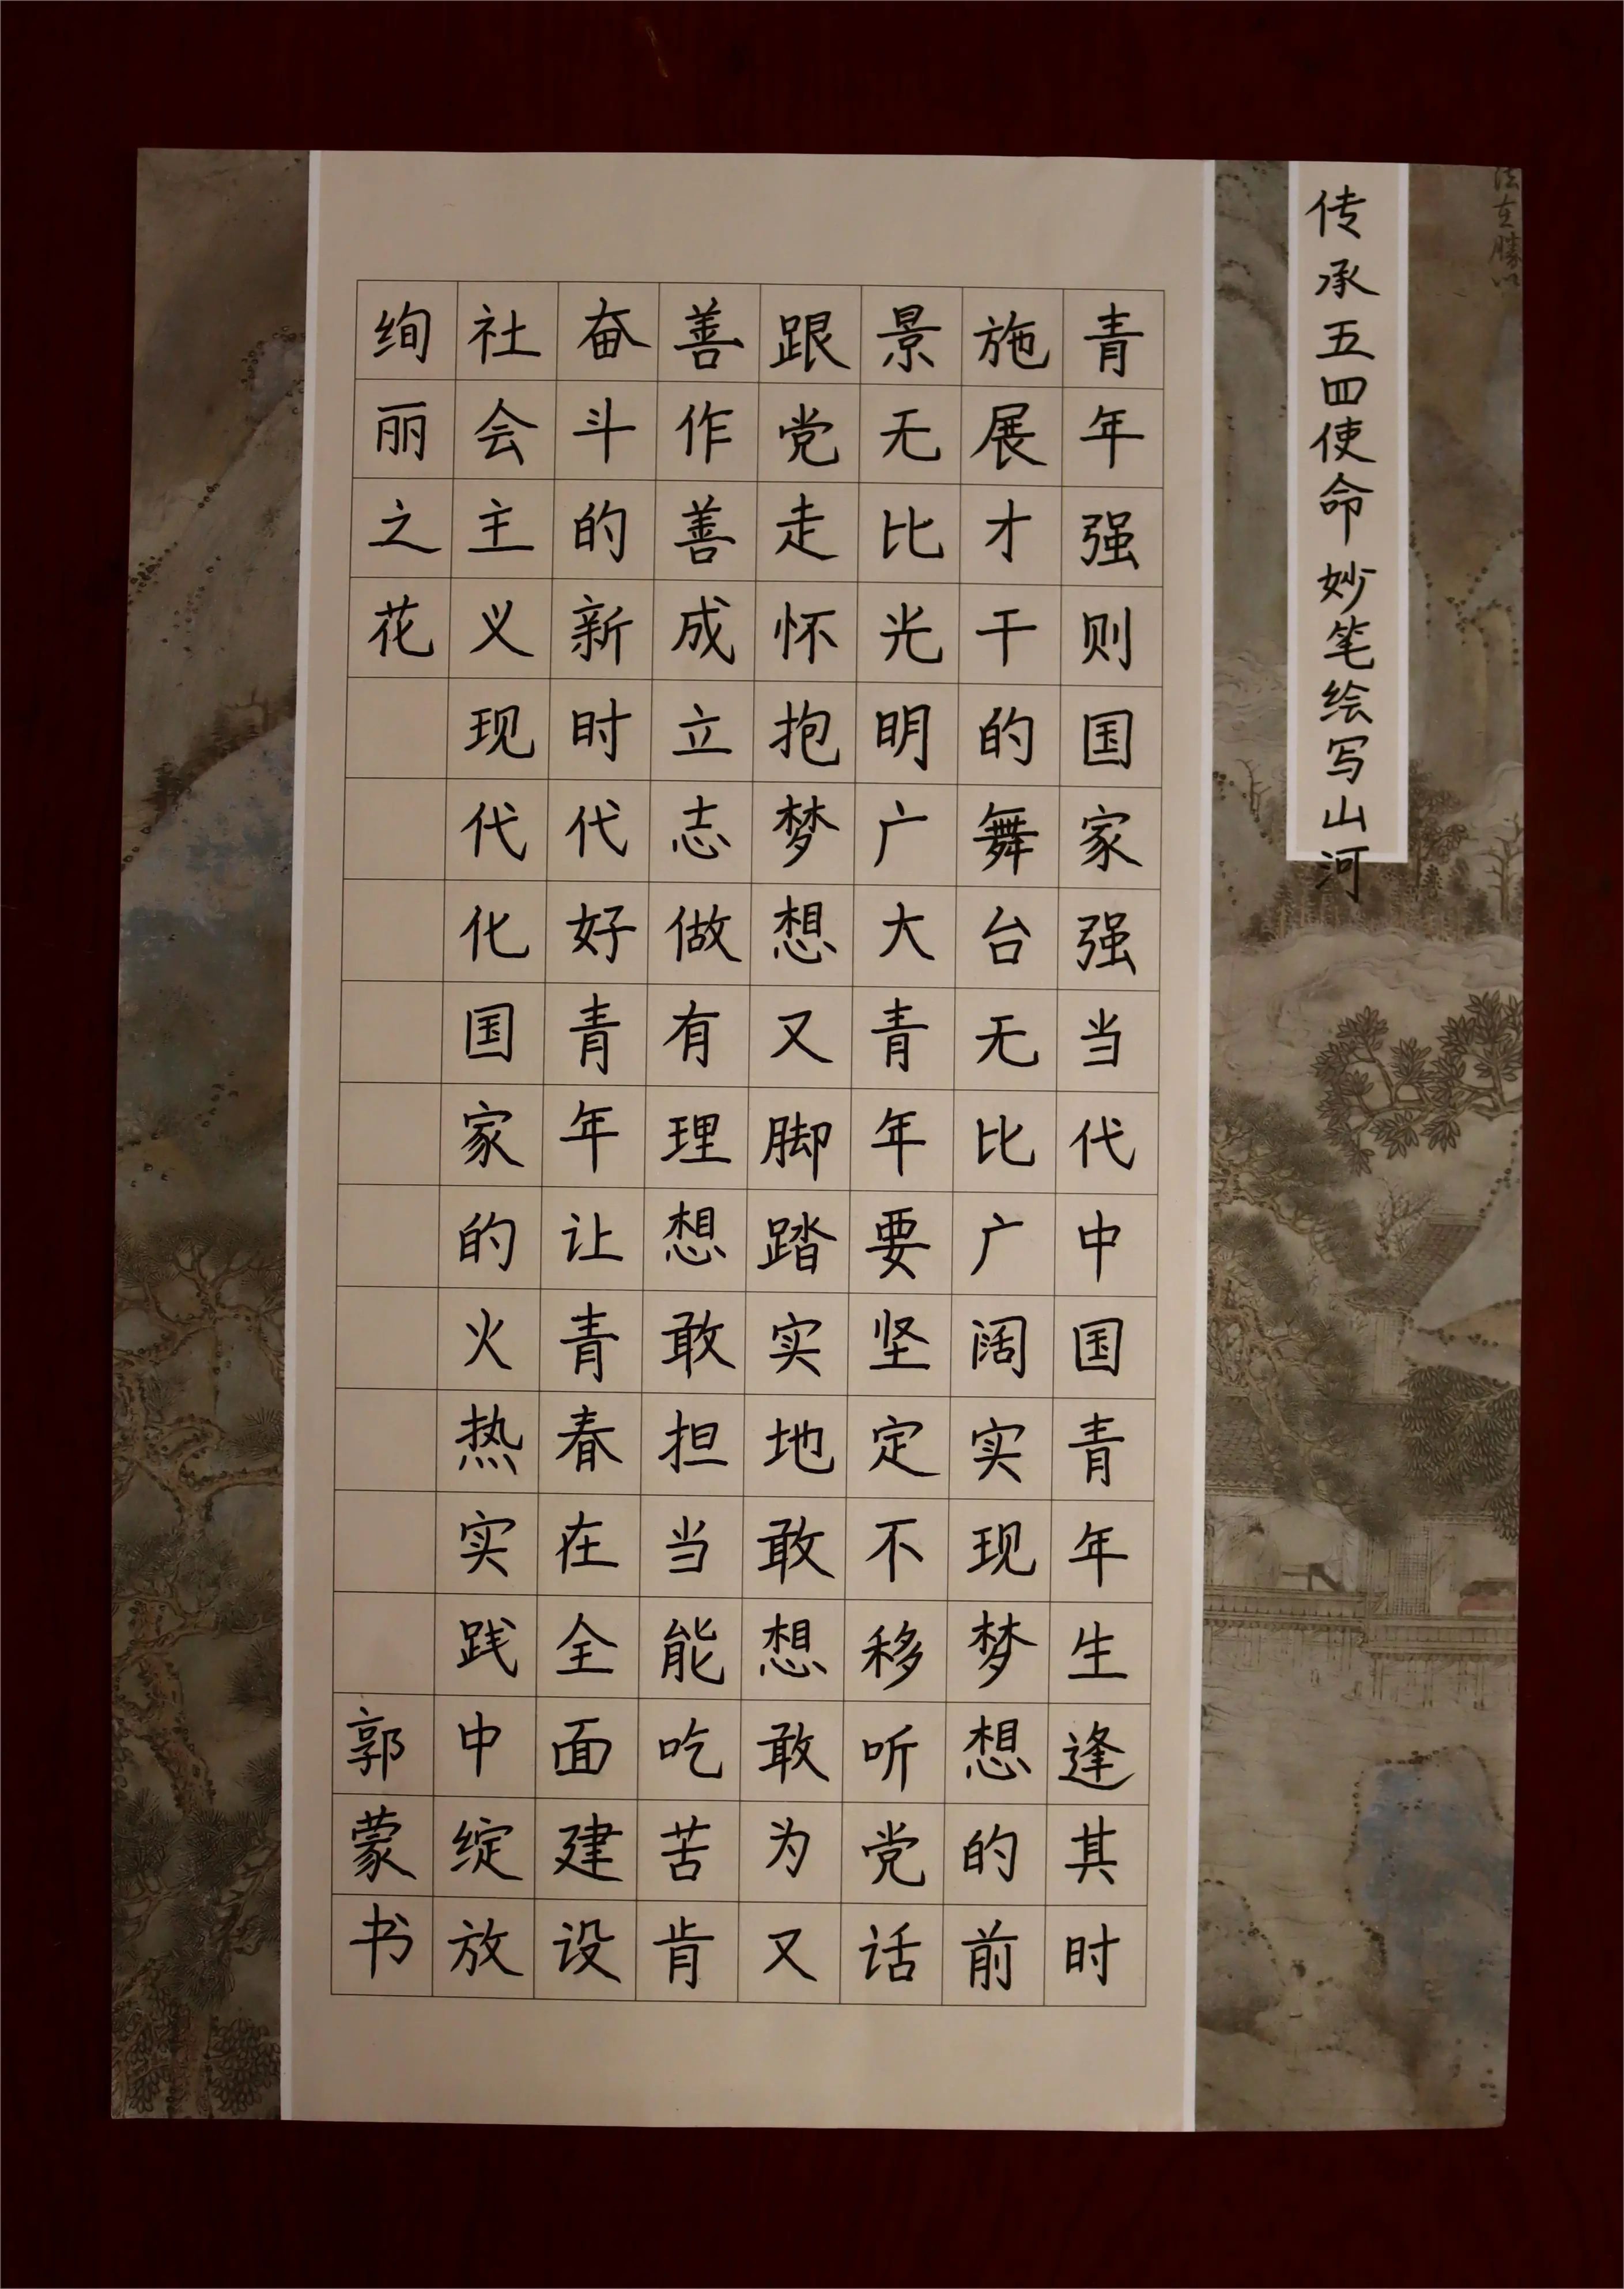 传承五四使命妙笔绘写山河
青年强则国家强当代中国青年生逢其时
施展才干的舞台无比广阔实现梦想的前
景无比光明广大青年要坚定不移听党话
跟党走怀抱梦想又脚踏实地敢想敢为又
善作善成立志做有理想敢担当能吃苦肯
奋斗的新时代好青年让青春在全面建设
社会主义现代化国家的火热实践中绽放
绚丽之花
郭蒙书